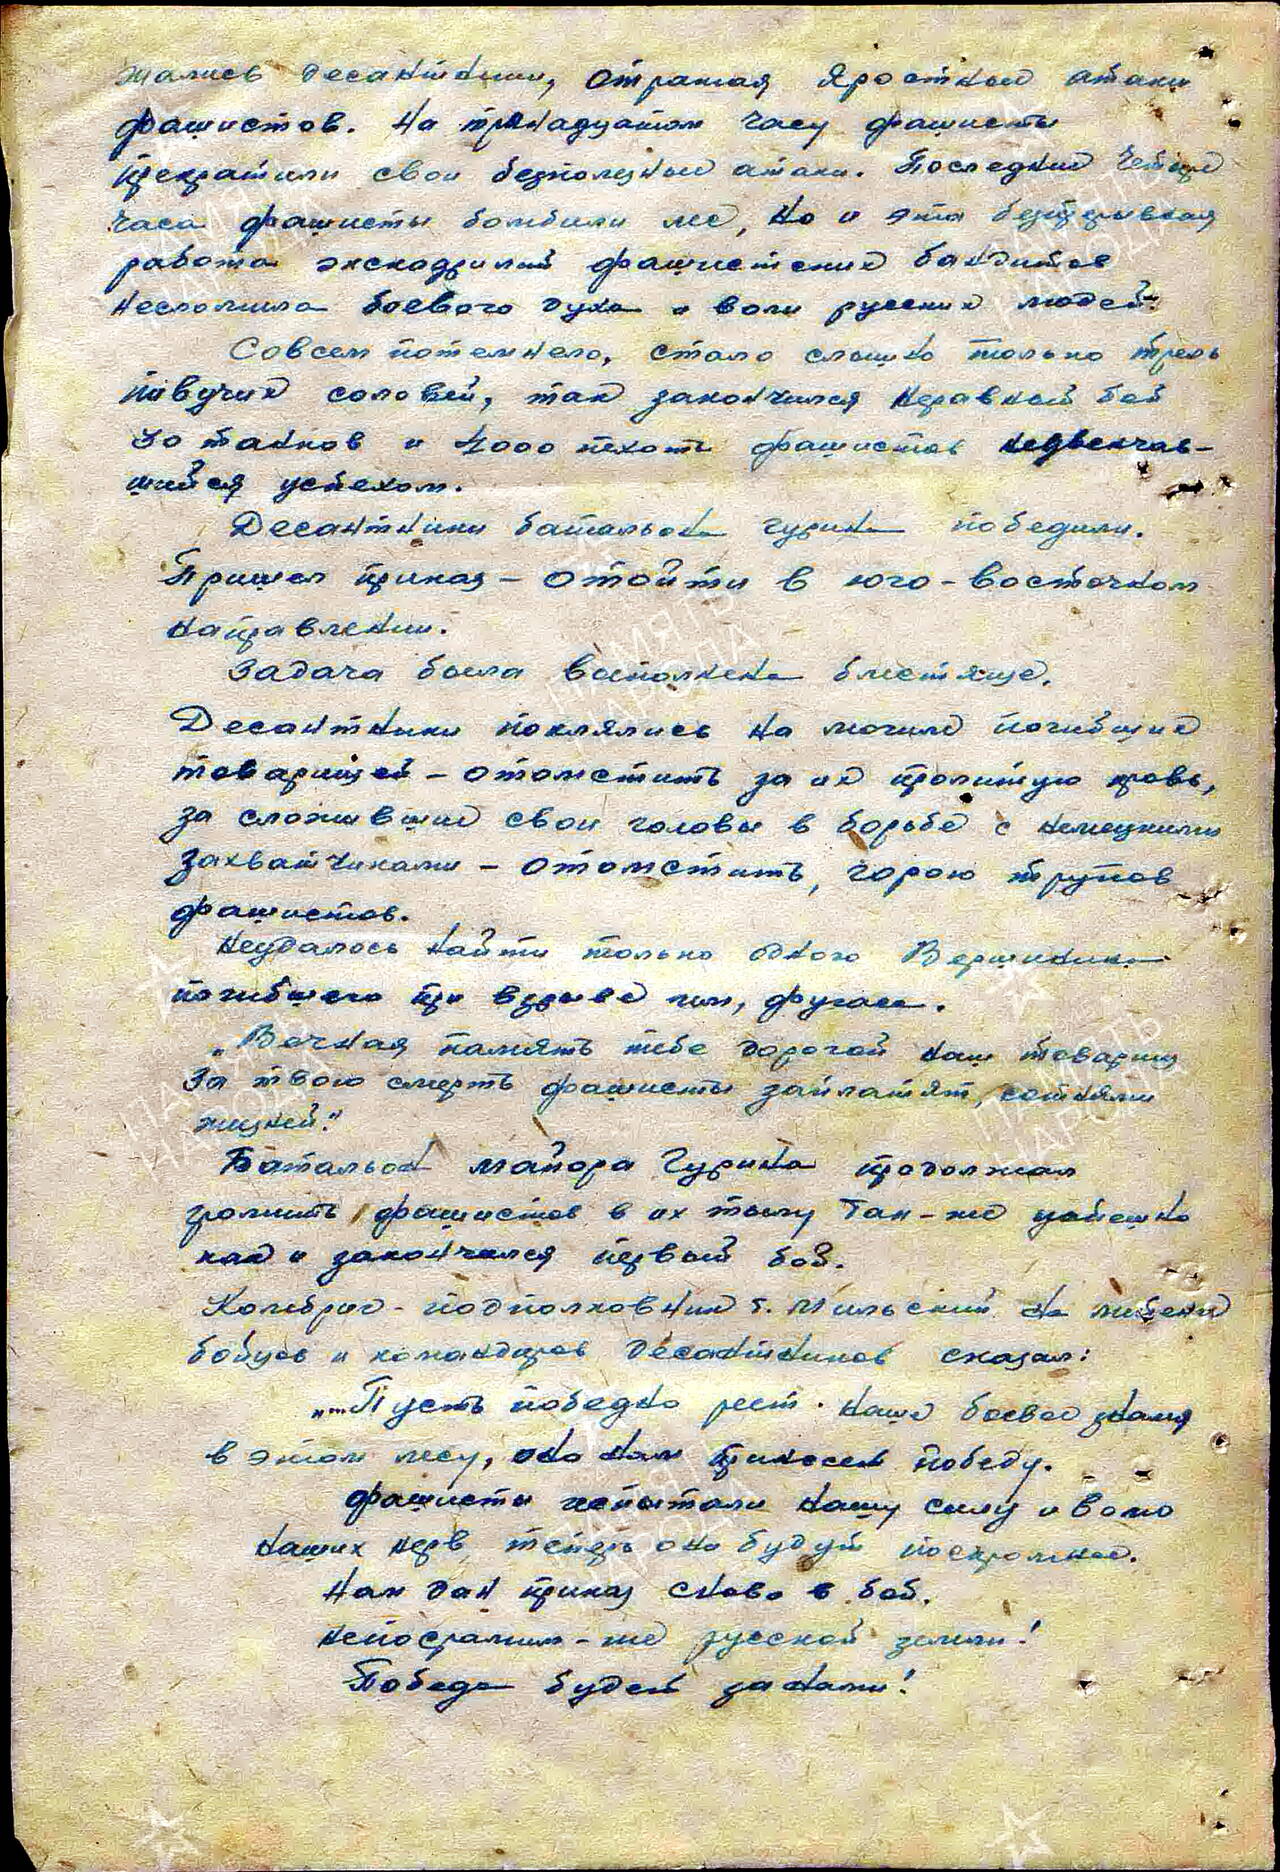 жались десантники, отражая яростные атаки
фашистов. На тринадцатом часу фашисты
прекратили свои безполезные атаки. Последние четыре
часа фашисты бомбили лес, но и эта безпрерывная
работа эскадрилий фашистских бандитов
несломила боевого духа и воли русских людей.
Совсем потемнело, стало слышно только трель
певучих соловей, так закончился неравный бой
30 танков и 4000 пехоты фашистов недвенчав-
шийся успехом.
Десантники батальона Гурина победили.
Пришел приказ - отойти в юго-восточном
направлении.
Задача была выполнена блестяще.
Десантники поклялись на могиле погибших
товарищей - отомстить за их пролитую кровь,
за сложившие свои головы в борьбе с немецкими
захватчиками - отомстить, горою трупов
фашистов.
Неудалось найти только одного Вершинина
погибшего при взрыве мин, фугаса.
„Вечная память тебе дорогой наш товарищ
За твою смерть фашисты заплатят, сотнями
жизней."
Батальон майора Гурина продолжал
громить фашистов в их тылу так-же успешно
как и закончился первый бой.
Комбриг - подполковник т. Мильский на митенге
бойцов и командиров десантников сказал:
„...Пусть победно реет. наше боевое знамя
в этом лесу, оно нам принесет победу.
Фашисты испытали нашу силу и волю
наших нерв, теперь они будут поскромнее.
Нам дан приказ снова в бой.
Непосрамим-же русской земли!
Победа будет за нами!
ПАМЯТЬ
НАРОДА